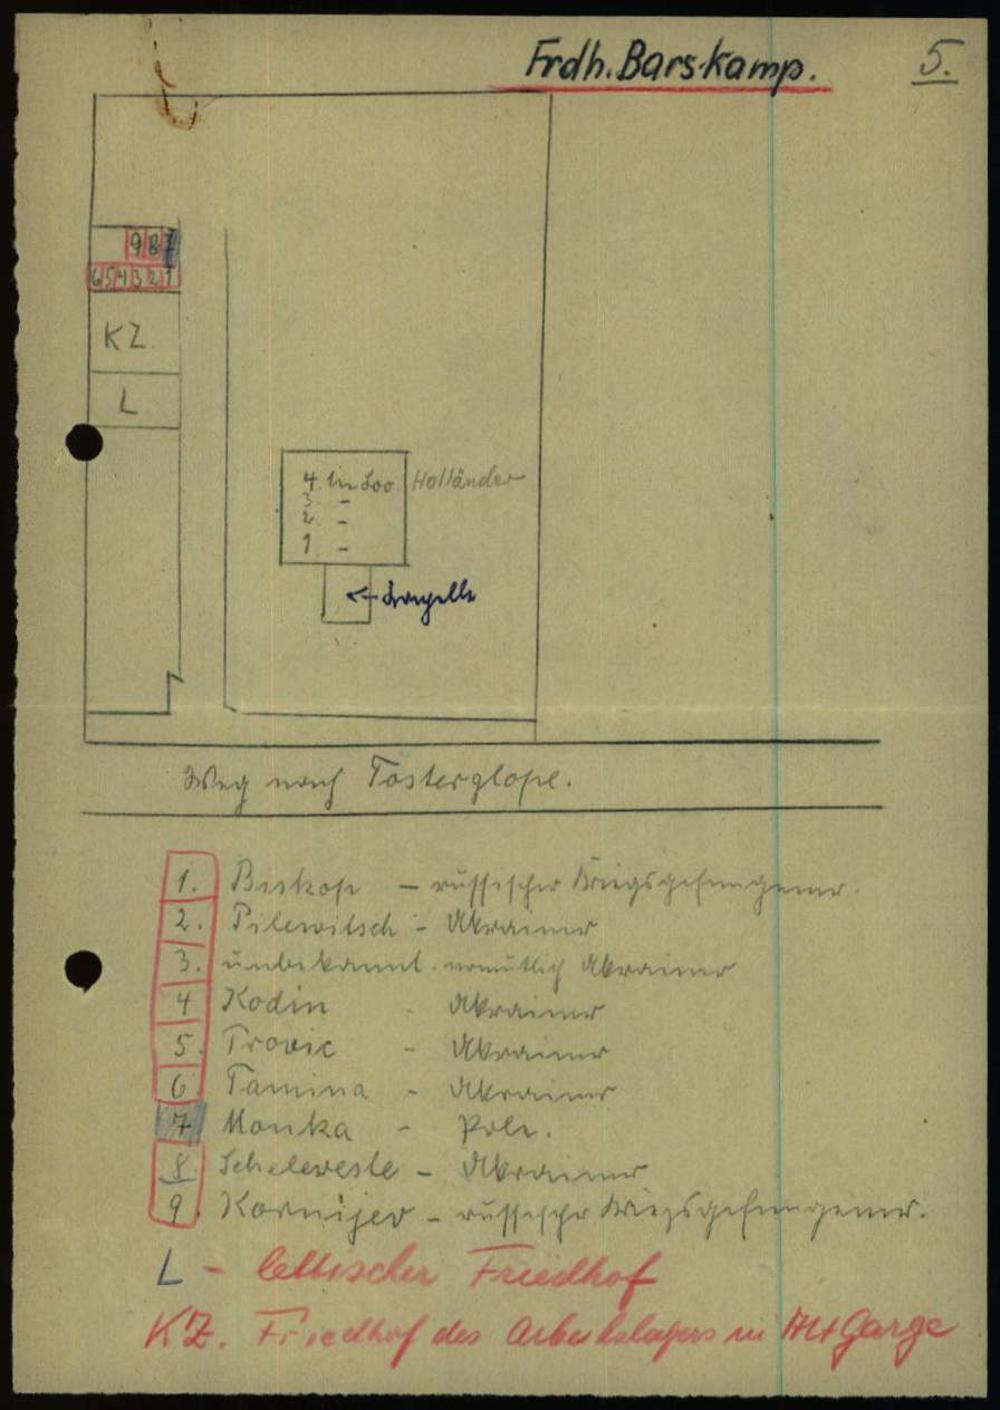 Frdh. Barskamp.
5.
9 8 7
6 5 4 3 2 1
KZ.
L
4. Holländer
3. -
2. -
1. -
← Kapelle
Weg nach Tosterglope.
1. Biskop - russischer Kriegsgefangener.
2. Pilewitsch - Ukrainer
3. unbekannt. vermutlich Ukrainer
4 Kodin - Ukrainer
5. Trovic - Ukrainer
6. Tamina - Ukrainer
7 Monka - Pole.
8. - Ukrainer
9. Kornijev - russischer Kriegsgefangener.
L - lettischer Friedhof
KZ. Friedhof des Arbeitslagers in Alt Garge